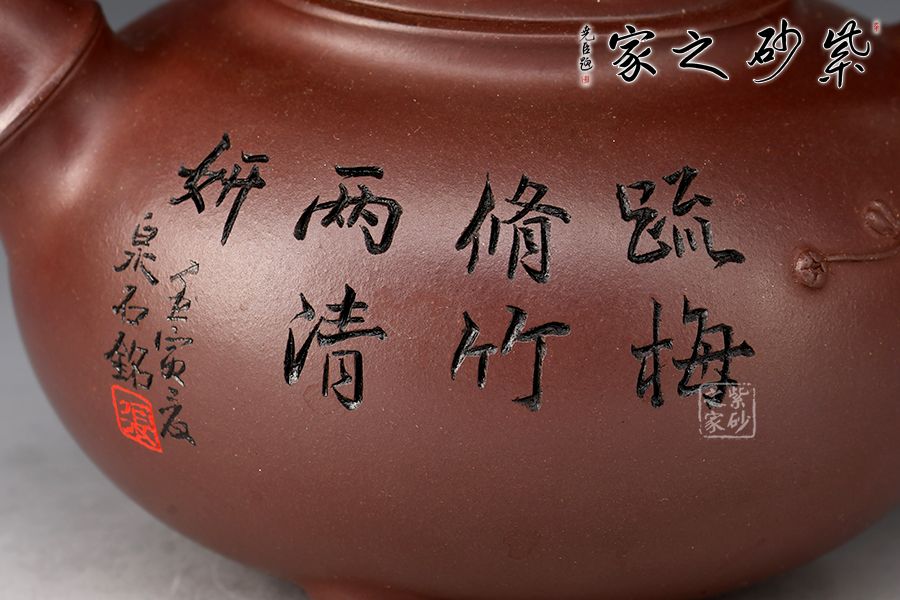 紫砂之家
尧臣题
疏梅
修竹
两清
妍
壬寅夏
泉石铭
紫砂之家